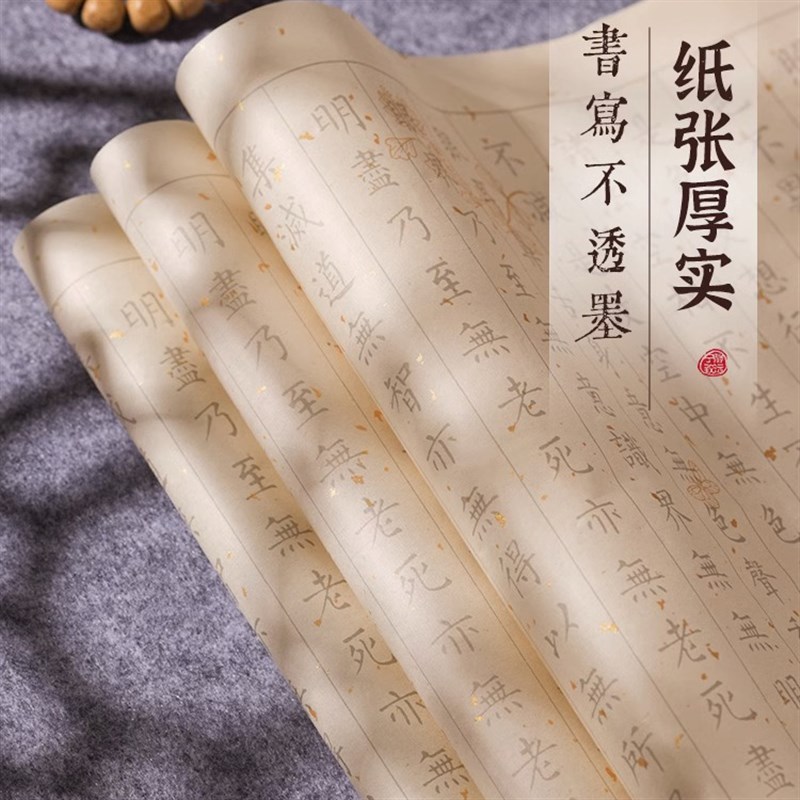 纸张厚实
書寫不透墨
不生
空中無色
意無色聲
意識界無無明
明盡乃至無老死亦無老死盡
集滅道無智亦無得以無所
明盡乃至無老死亦無老
明盡乃至無老死亦無